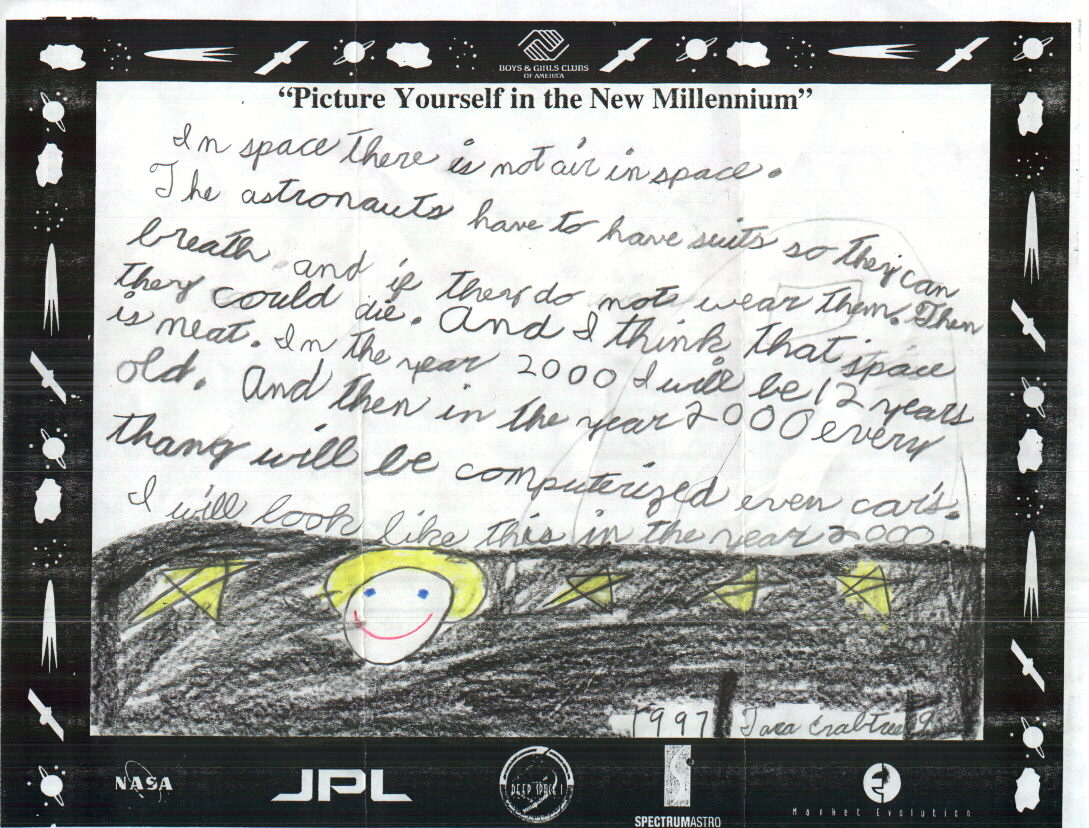 BOYS & GIRLS CLUBS
OF AMERICA
"Picture Yourself in the New Millennium"
In space there is not air in space.
The astronauts have to have suits so they can
breath and if they do not wear them. Then
they could die. And I think that space
is neat. In the year 2000 I will be 12 years
old. And then in the year 2000 every
thang will be computerized even car's.
I will look like this in the year 2000
1997 Tara Crabtree 9
NASA JPL DEEP SPACE 1 SPECTRUMASTRO Market Evolution